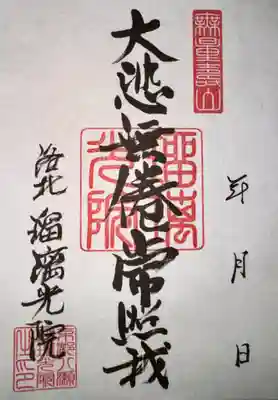 無量壽山
年 月 日
大悲無倦常照我
洛北 瑠璃光院